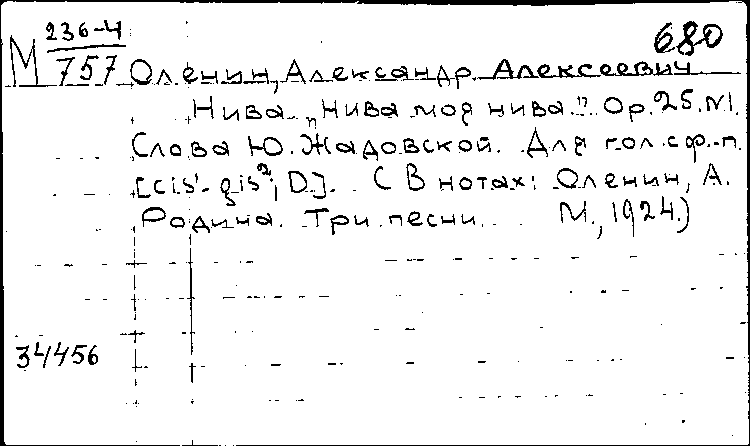 М 236-4/757
680
Оленин, Александр Алексеевич
Нива. „Нива моя нива". Op. 25. N1.
Слова Ю. Жадовской. Для гол. с ф.-п.
[cis¹- gis²; D.]. (В нотах: Оленин, А.
Родина. Три песни. М., 1924.)
34456